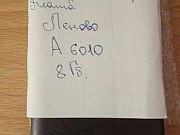 Леново
A 6010
8 Гб.